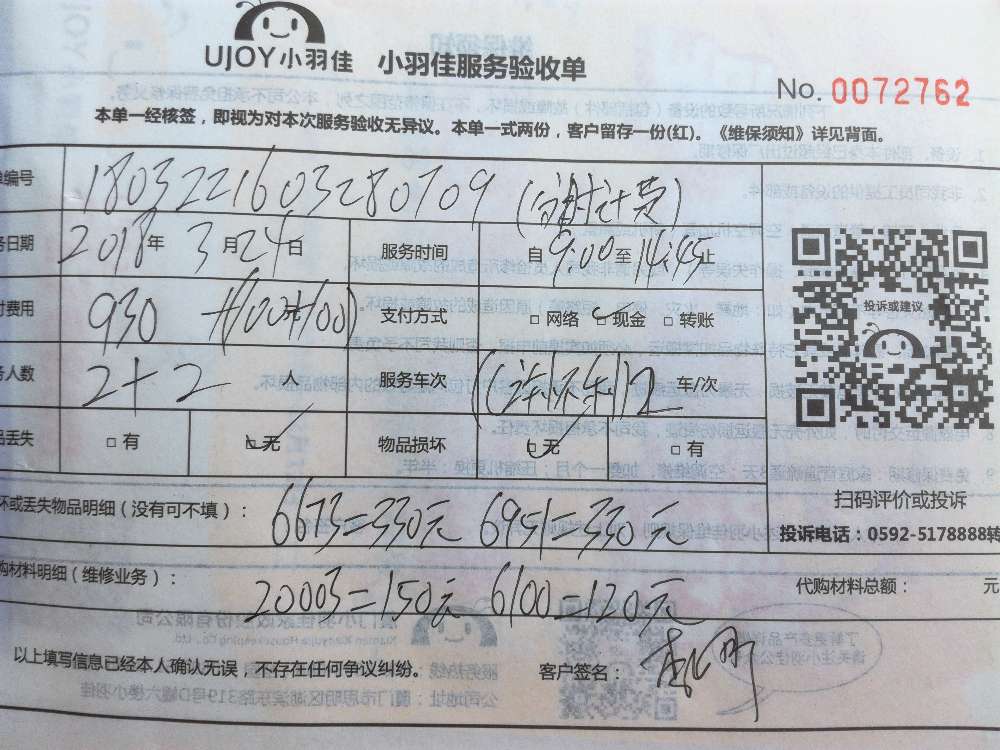 UJOY小羽佳 小羽佳服务验收单
No. 0072762
本单一经核签，即视为对本次服务验收无异议。本单一式两份，客户留存一份(红)。《维保须知》详见背面。
单编号 1803221603280709 (计费)
务日期 2018年 3月24日 服务时间 自9:00至14:45止
付费用 930 支付方式 □网络 □现金 □转账
投诉或建议
务人数 2+2 人 服务车次 2 车/次
品丢失 □有 □无 物品损坏 □无 □有
扫码评价或投诉
坏或丢失物品明细（没有可不填）： 6673=330元 6951=330元
投诉电话：0592-5178888转
购材料明细（维修业务）： 20003=150元 6100=120元
代购材料总额： 元
以上填写信息已经本人确认无误，不存在任何争议纠纷。 客户签名：